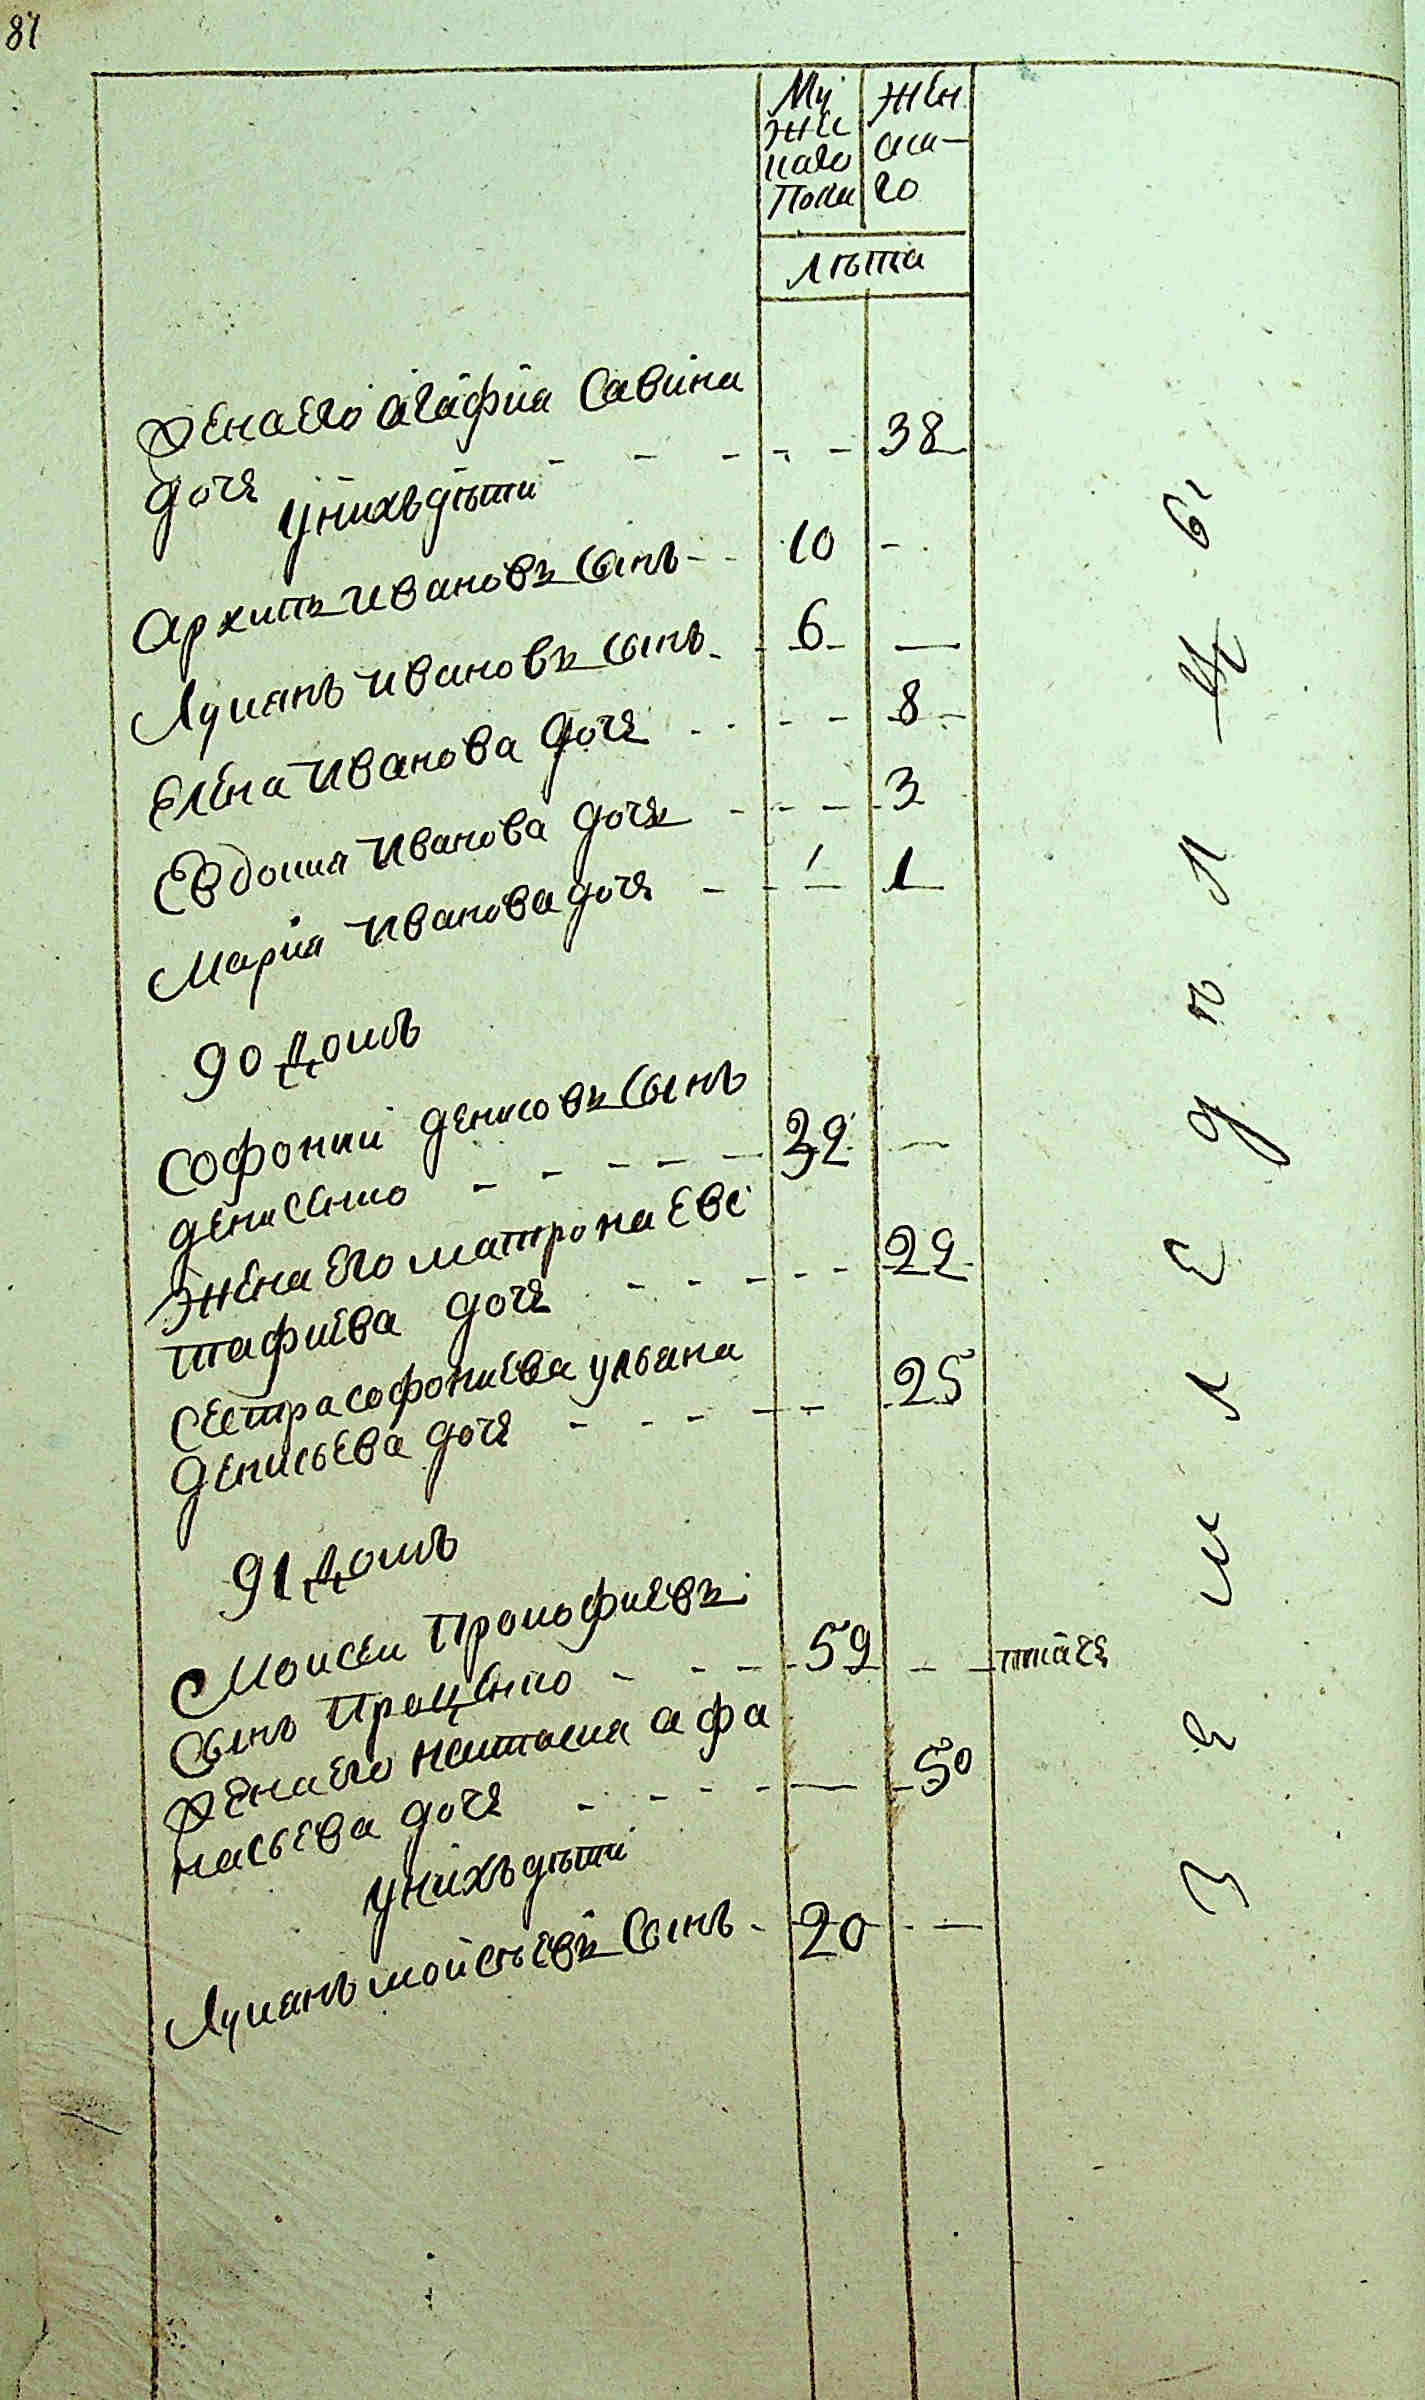 81
Му
жес
каго
Полы
Жен
ска-
го
лѣта
Жена его агафия Савина
дочь 38
у нихъ дѣти
Архипъ Ивановъ Сынъ 10
Лукянъ Ивановъ Сынъ 6
Елена Иванова дочь 8
Евдокия Иванова дочь 3
Мария Иванова дочь 1
90 домъ
Софоний денисовъ Сынъ
денисенко 32
жена его матрона Евс
тафиева дочь 22
Сестра софониева ульяна
денисьева дочь 25
91 домъ
Моисеи Прокофиевъ
Сынъ Проценко 59 ткачь
Жена его наталия афа
насьева дочь 50
у нихъ дѣти
Лукянъ мойсѣевъ Сынъ 20
Земледѣлцы